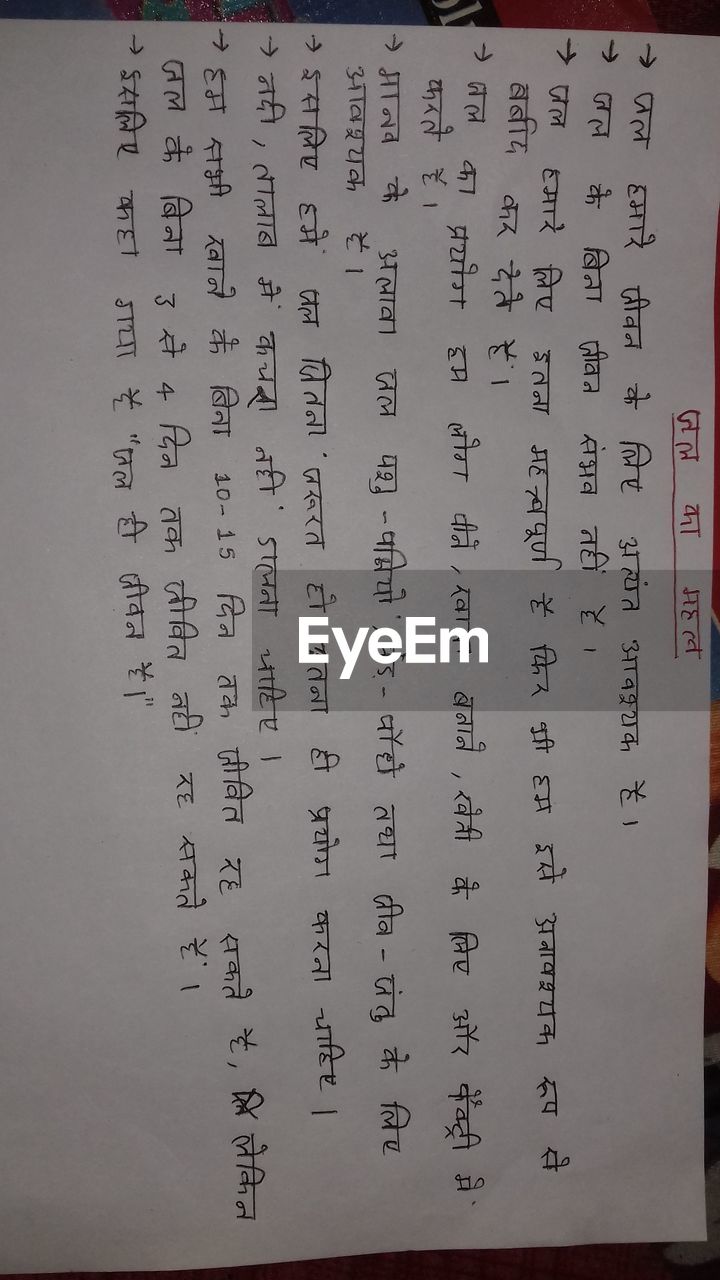 जल का महत्व
→ जल हमारे जीवन के लिए अत्यंत आवश्यक है।
→ जल के बिना जीवन संभव नहीं है।
→ जल हमारे लिए इतना महत्वपूर्ण है फिर भी हम इसे अनावश्यक रूप से
बर्बाद कर देते हैं।
→ जल का प्रयोग हम लोग पीने, खाना बनाने, खेती के लिए और फैक्ट्री में
करते हैं।
→ मानव के अलावा जल पशु-पक्षियों पेड़-पौधों तथा जीव-जंतु के लिए
आवश्यक है।
→ इसलिए हमें जल जितना जरूरत हो उतना ही प्रयोग करना चाहिए।
→ नदी, तालाब में कचरा नहीं डालना चाहिए।
→ हम सभी खाने के बिना 10-15 दिन तक जीवित रह सकते है, लेकिन
जल के बिना 3 से 4 दिन तक जीवित नहीं रह सकते हैं।
→ इसलिए कहा गया है "जल ही जीवन है।"
EyeEm